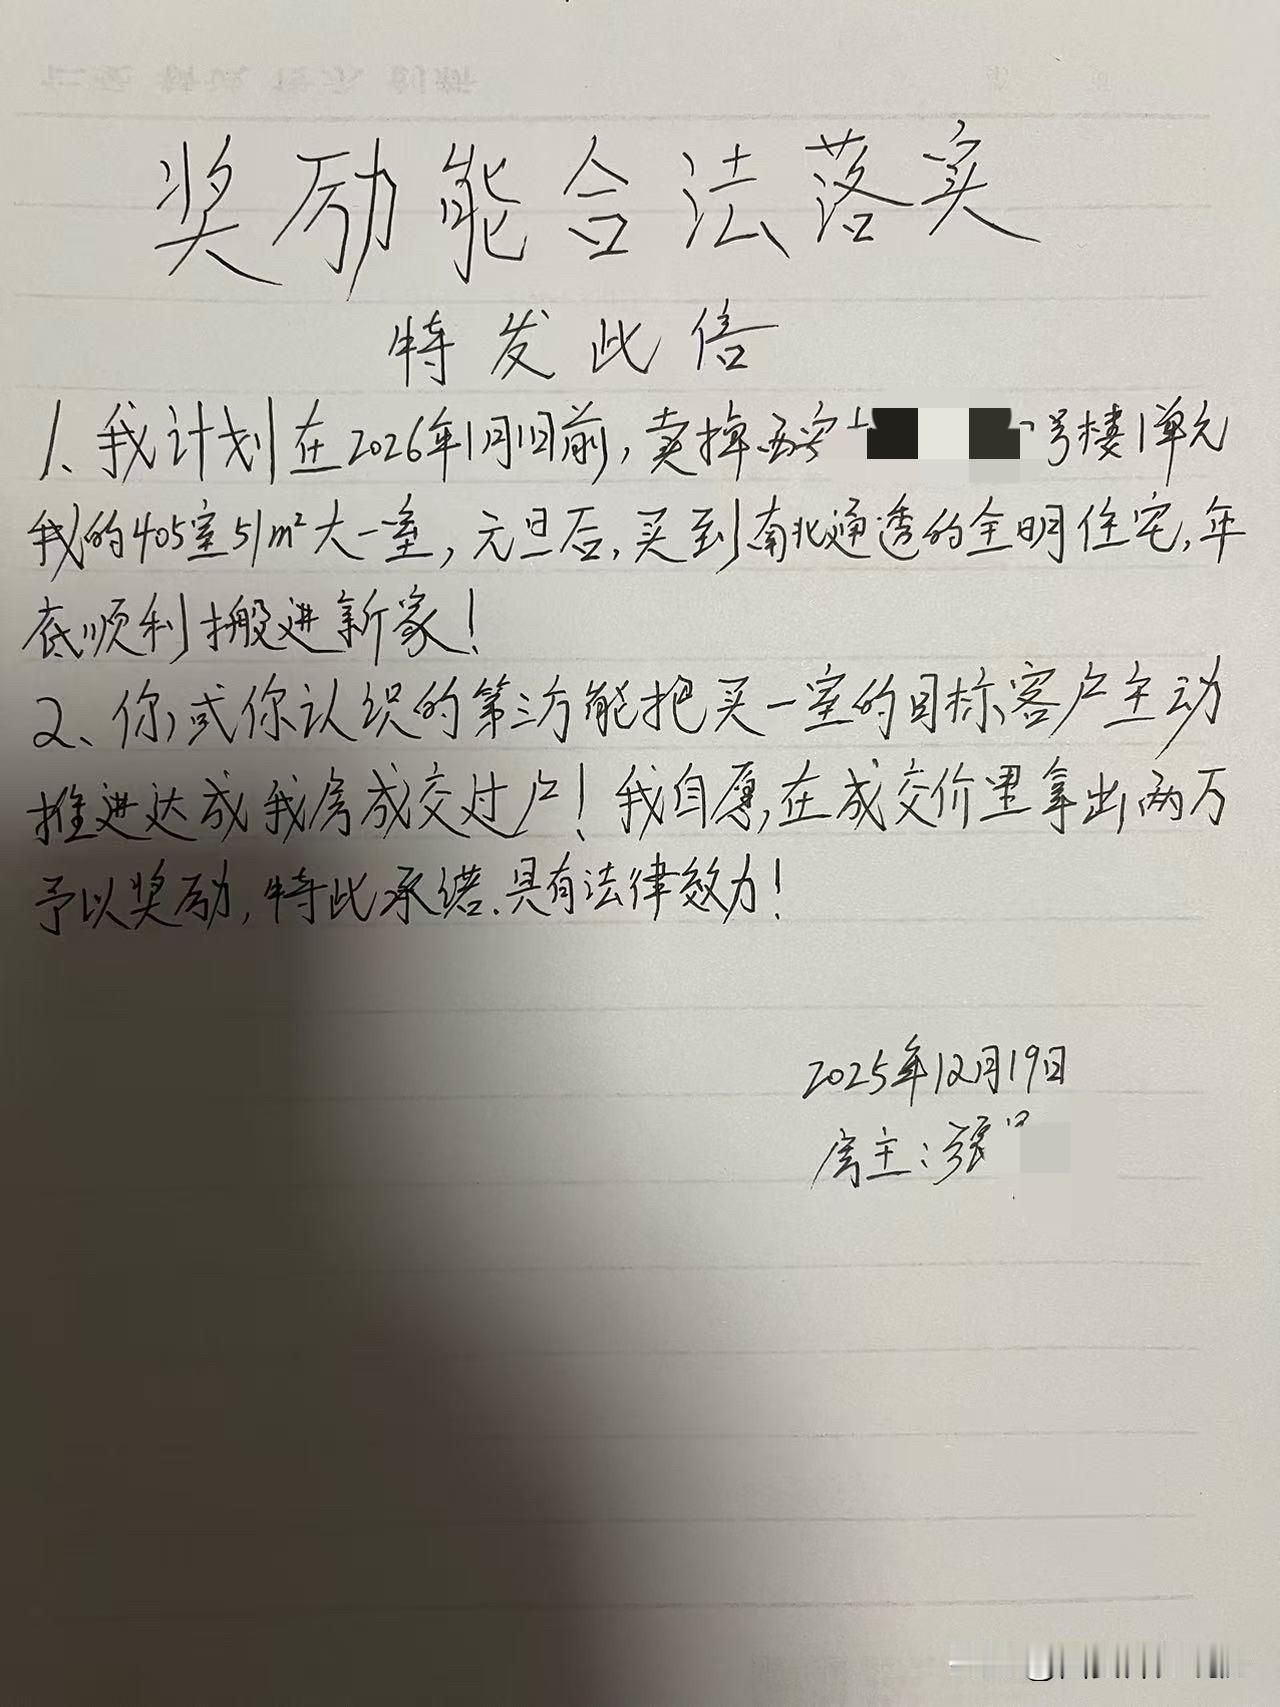 奖励能合法落实
特发此倍
1、我计划在2026年1月1日前,卖掉西安 号楼1单元
我的405室51m²大一室,元旦后,买到南北通透的全明住宅,年
底顺利搬进新家!
2、你或你认识的第三方能把买一室的目标客户主动
推进达成我房成交过户!我自愿,在成交价里拿出两万
予以奖励,特此承诺.具有法律效力!
2025年12月19日
房主:张